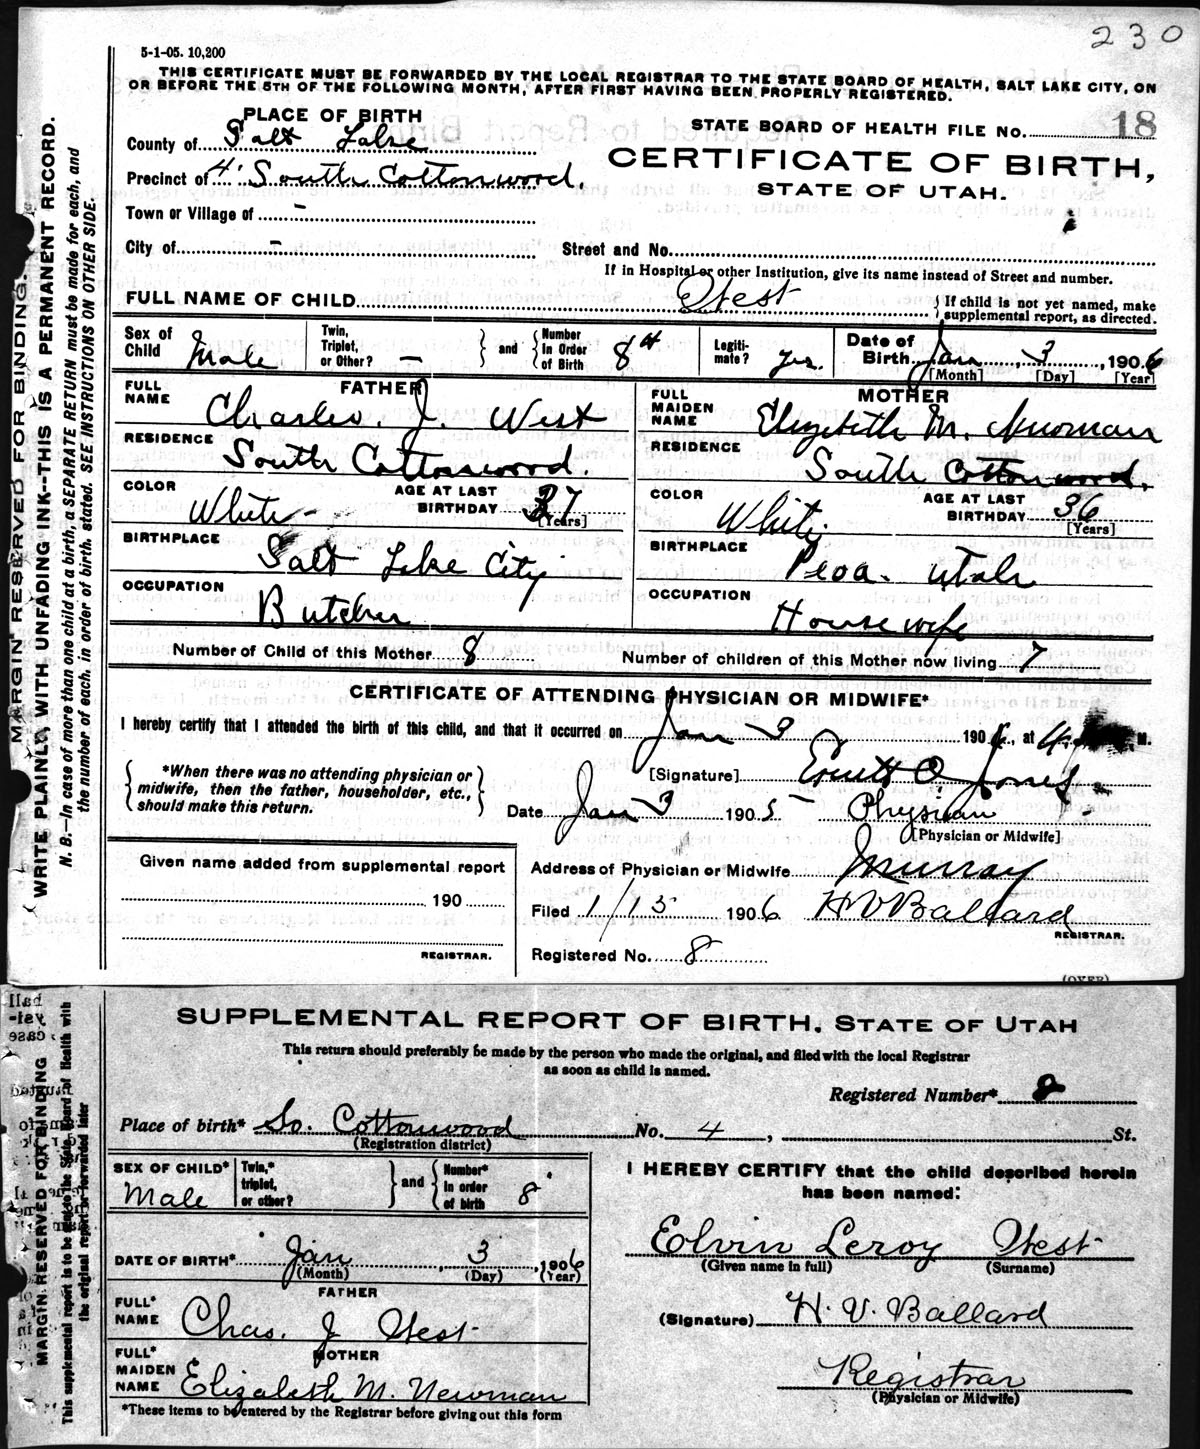 230
5-1-05. 10,200
THIS CERTIFICATE MUST BE FORWARDED BY THE LOCAL REGISTRAR TO THE STATE BOARD OF HEALTH, SALT LAKE CITY, ON
OR BEFORE THE 5TH OF THE FOLLOWING MONTH, AFTER FIRST HAVING BEEN PROPERLY REGISTERED.
PLACE OF BIRTH
STATE BOARD OF HEALTH FILE No. 18
County of Salt Lake
CERTIFICATE OF BIRTH,
Precinct of 4 South Cottonwood,
STATE OF UTAH.
Town or Village of -
City of - Street and No.
If in Hospital or other Institution, give its name instead of Street and number.
FULL NAME OF CHILD West { If child is not yet named, make
supplemental report, as directed.
Sex of Child Male Twin, Triplet, or Other? - } and { Number In Order of Birth 8th Legiti-mate? yes. Date of Birth Jan, 3, 1906
[Month] [Day] [Year]
FATHER
FULL NAME Charles. J. West
RESIDENCE South Cottonwood.
COLOR White AGE AT LAST BIRTHDAY 37 [Years]
BIRTHPLACE Salt Lake City
OCCUPATION Butcher
MOTHER
FULL MAIDEN NAME Elizabeth M. Newman
RESIDENCE South Cottonwood.
COLOR White AGE AT LAST BIRTHDAY 36 [Years]
BIRTHPLACE Peoa. Utah
OCCUPATION Housewife
Number of Child of this Mother 8 Number of children of this Mother now living 7
CERTIFICATE OF ATTENDING PHYSICIAN OR MIDWIFE*
I hereby certify that I attended the birth of this child, and that it occurred on Jan 3 1906, at 4 M.
{ *When there was no attending physician or
midwife, then the father, householder, etc.,
should make this return. }
[Signature] Jones
Date Jan 3 1905 Physician
[Physician or Midwife]
Given name added from supplemental report
190
REGISTRAR.
Address of Physician or Midwife Murray
Filed 1/15 1906 H V Ballard
REGISTRAR.
Registered No. 8
(OVER)
MARGIN RESERVED FOR BINDING.
WRITE PLAINLY WITH UNFADING INK--THIS IS A PERMANENT RECORD.
N. B.—In case of more than one child at a birth, a SEPARATE RETURN must be made for each, and
the number of each, in order of birth, stated. SEE INSTRUCTIONS ON OTHER SIDE.
SUPPLEMENTAL REPORT OF BIRTH. STATE OF UTAH
This return should preferably be made by the person who made the original, and filed with the local Registrar
as soon as child is named.
Registered Number* 8
Place of birth* So. Cottonwood No. 4, St.
(Registration district)
SEX OF CHILD* Male Twin,* triplet, or other? } and { Number* In order of birth 8
DATE OF BIRTH* Jan, 3, 1906
(Month) (Day) (Year)
FATHER
FULL* NAME Chas. J West
MOTHER
FULL* MAIDEN NAME Elizabeth M. Newman
*These items to be entered by the Registrar before giving out this form
I HEREBY CERTIFY that the child described herein
has been named:
Elvin Leroy West
(Given name in full) (Surname)
(Signature) H. V. Ballard
Registrar
(Physician or Midwife)
MARGIN RESERVED FOR BINDING
This supplemental report is to be sent to the State Board of Health with
the original report or forwarded later